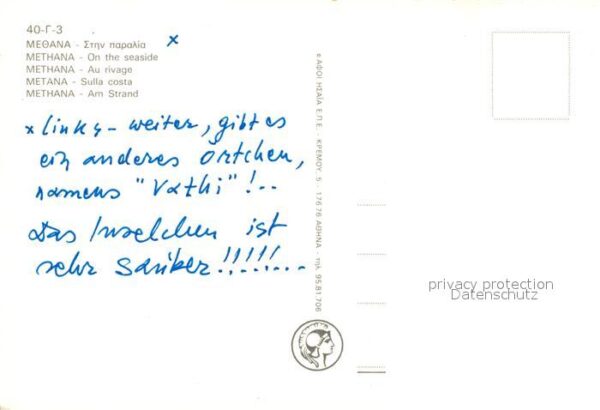 40-Γ-3
ΜΕΘΑΝΑ - Στην παραλία x
METHANA - On the seaside
METHANA - Au rivage
METANA - Sulla costa
METHANA - Am Strand
x links - weiter, gibt es
ein anderes Örtchen,
namens "Vathi"!..
Das Inselchen ist
sehr sauber!!!!!!...
ΑΦΟΙ ΗΣΑΪΑ Ε.Π.Ε. - ΚΡΕΜΟΥ, 5 - 17676 ΑΘΗΝΑ - τηλ. 95.81.706
privacy protection
Datenschutz